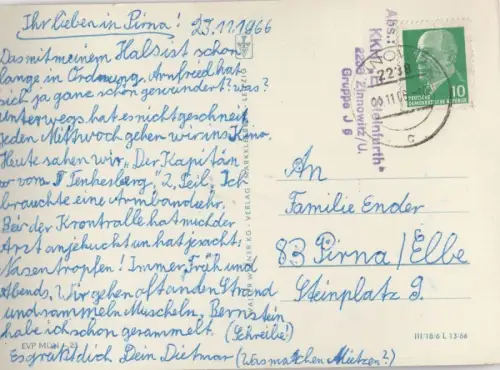 Ihr lieben in Pirna! 23.11.1966
Das mit meinem Hals ist schon
lange in Ordnung. Arnfried hat
sich ja ganz schön gewundert? was?
Unterwegs hat es nicht geschneit
jeden Mittwoch gehen wir ins Kino.
Heute sahen wir „Der Kapitän
vom Tenkesberg" 2. Teil, Ich
brauchte eine Armbanduhr.
Bei der Krontralle hat mich der
Arzt angekuckt un hat jesacht:
Nasentropfen! Immer Früh und
Abends. Wir gehen oft an den Strand
und sammeln Muscheln. Bernstein
habe ich schon gesammelt. (Schreibe!)
Es grüßt dich Dein Dietmar (Was machen Mietzen?)
EVP MDN
WALTER WAGNER KG · VERLAG LEIPZIG
Abs.:
KKH Steinfurth"
2238 Zinnowitz/U.
Gruppe J 6
2238
11.66
c
10
DEUTSCHE
DEMOKRATISCHE REPUBLIK
An
Familie Ender
83 Pirna/Elbe
Steinplatz 9.
III/18/6 L 13/66